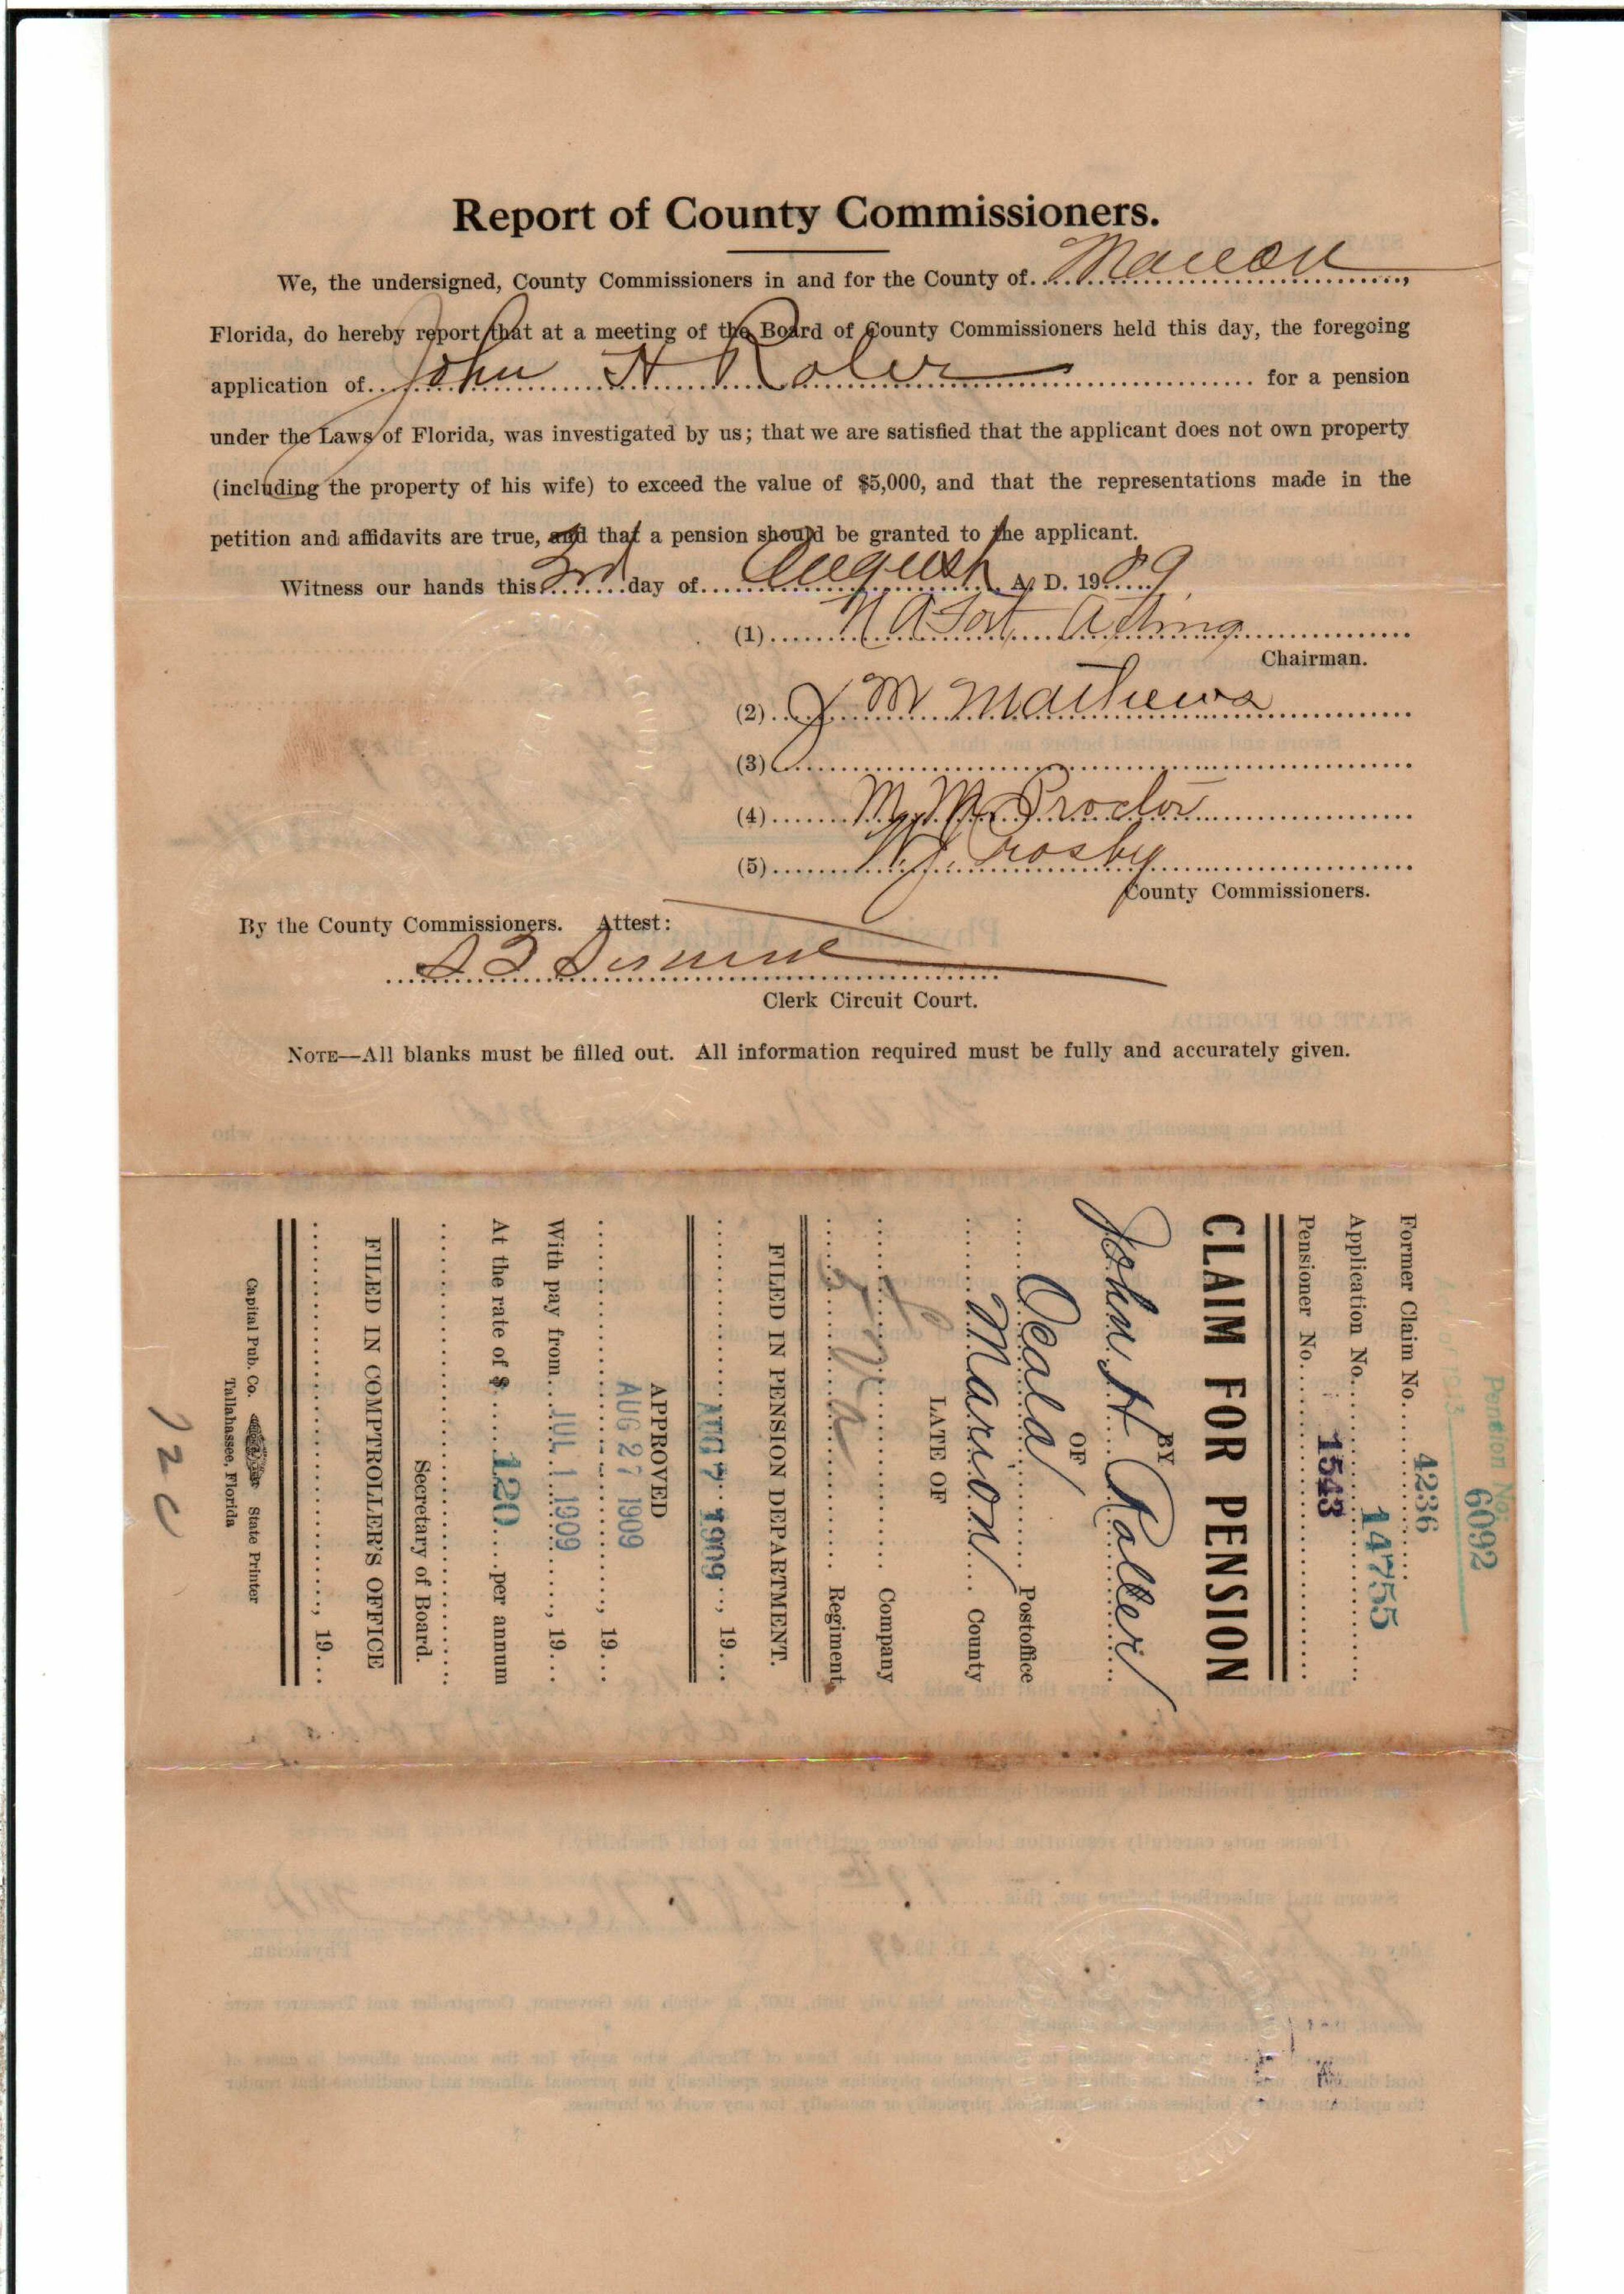 Report of County Commissioners.
We, the undersigned, County Commissioners in and for the County of Marion,
Florida, do hereby report that at a meeting of the Board of County Commissioners held this day, the foregoing
application of John H Roler for a pension
under the Laws of Florida, was investigated by us; that we are satisfied that the applicant does not own property
(including the property of his wife) to exceed the value of $5,000, and that the representations made in the
petition and affidavits are true, and that a pension should be granted to the applicant.
Witness our hands this 3rd day of August A. D. 1909
(1) N A Fort Acting
Chairman.
(2) J M Mathews
(3)
(4) M. M. Proctor
(5) W. J. Crosby
County Commissioners.
By the County Commissioners. Attest:
S T Sistrunk
Clerk Circuit Court.
NOTE—All blanks must be filled out. All information required must be fully and accurately given.
Pension No.
6092
Former Claim No. 4236
Application No. 14755
Pensioner No. 1543
CLAIM FOR PENSION
BY
John H Roller
OF
Ocala Postoffice
Marion County
LATE OF
Company
Regiment
FILED IN PENSION DEPARTMENT.
AUG 7 1909, 19
APPROVED
AUG 27 1909, 19
With pay from JUL 1 1909, 19
At the rate of $ 120 per annum
Secretary of Board.
FILED IN COMPTROLLER'S OFFICE
, 19
Capital Pub. Co. State Printer
Tallahassee, Florida